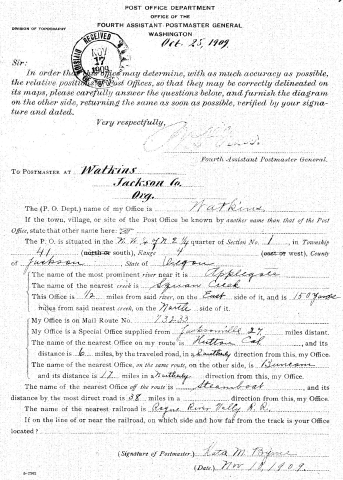 POST OFFICE DEPARTMENT
OFFICE OF THE
FOURTH ASSISTANT POSTMASTER GENERAL
WASHINGTON
DIVISION OF TOPOGRAPHY
Oct. 25, 1909.
RECEIVED
NOV
17
1909
Sir:
In order that the Post Office Department may determine, with as much accuracy as possible,
the relative positions of Post Offices, so that they may be correctly delineated on
its maps, please carefully answer the questions below, and furnish the diagram
on the other side, returning the same as soon as possible, verified by your signa-
ture and dated.
Very respectfully,
Fourth Assistant Postmaster General.
TO POSTMASTER AT Watkins
Jackson Co.
Org.
The (P. O. Dept.) name of my Office is Watkins
If the town, village, or site of the Post Office be known by another name than that of the Post
Office, state that other name here:
The P. O. is situated in the N.W. 1/4 of N.E. 1/4 quarter of Section No. 1, in Township
41 (north or south), Range 4 (east or west), County
of Jackson State of Oregon
The name of the most prominent river near it is Applegate
The name of the nearest creek is Squaw Creek
This Office is 12 miles from said river, on the East side of it, and is 150 yards
miles from said nearest creek, on the North side of it.
My Office is on Mail Route No. 73233
My Office is a Special Office supplied from Jacksonville 27 miles distant.
The name of the nearest Office on my route is Hutton Cal, and its
distance is 6 miles, by the traveled road, in a direction from this, my Office.
The name of the nearest Office, on the same route, on the other side, is Buncom
and its distance is 17 miles in a Northerly direction from this, my Office.
The name of the nearest Office off the route is Steamboat, and its
distance by the most direct road is 38 miles in a direction from this, my Office.
The name of the nearest railroad is Rogue River Valley R.R.
If on the line of or near the railroad, on which side and how far from the track is your Office
located?
(Signature of Postmaster) M. Byrne
(Date) Nov 1 1909.